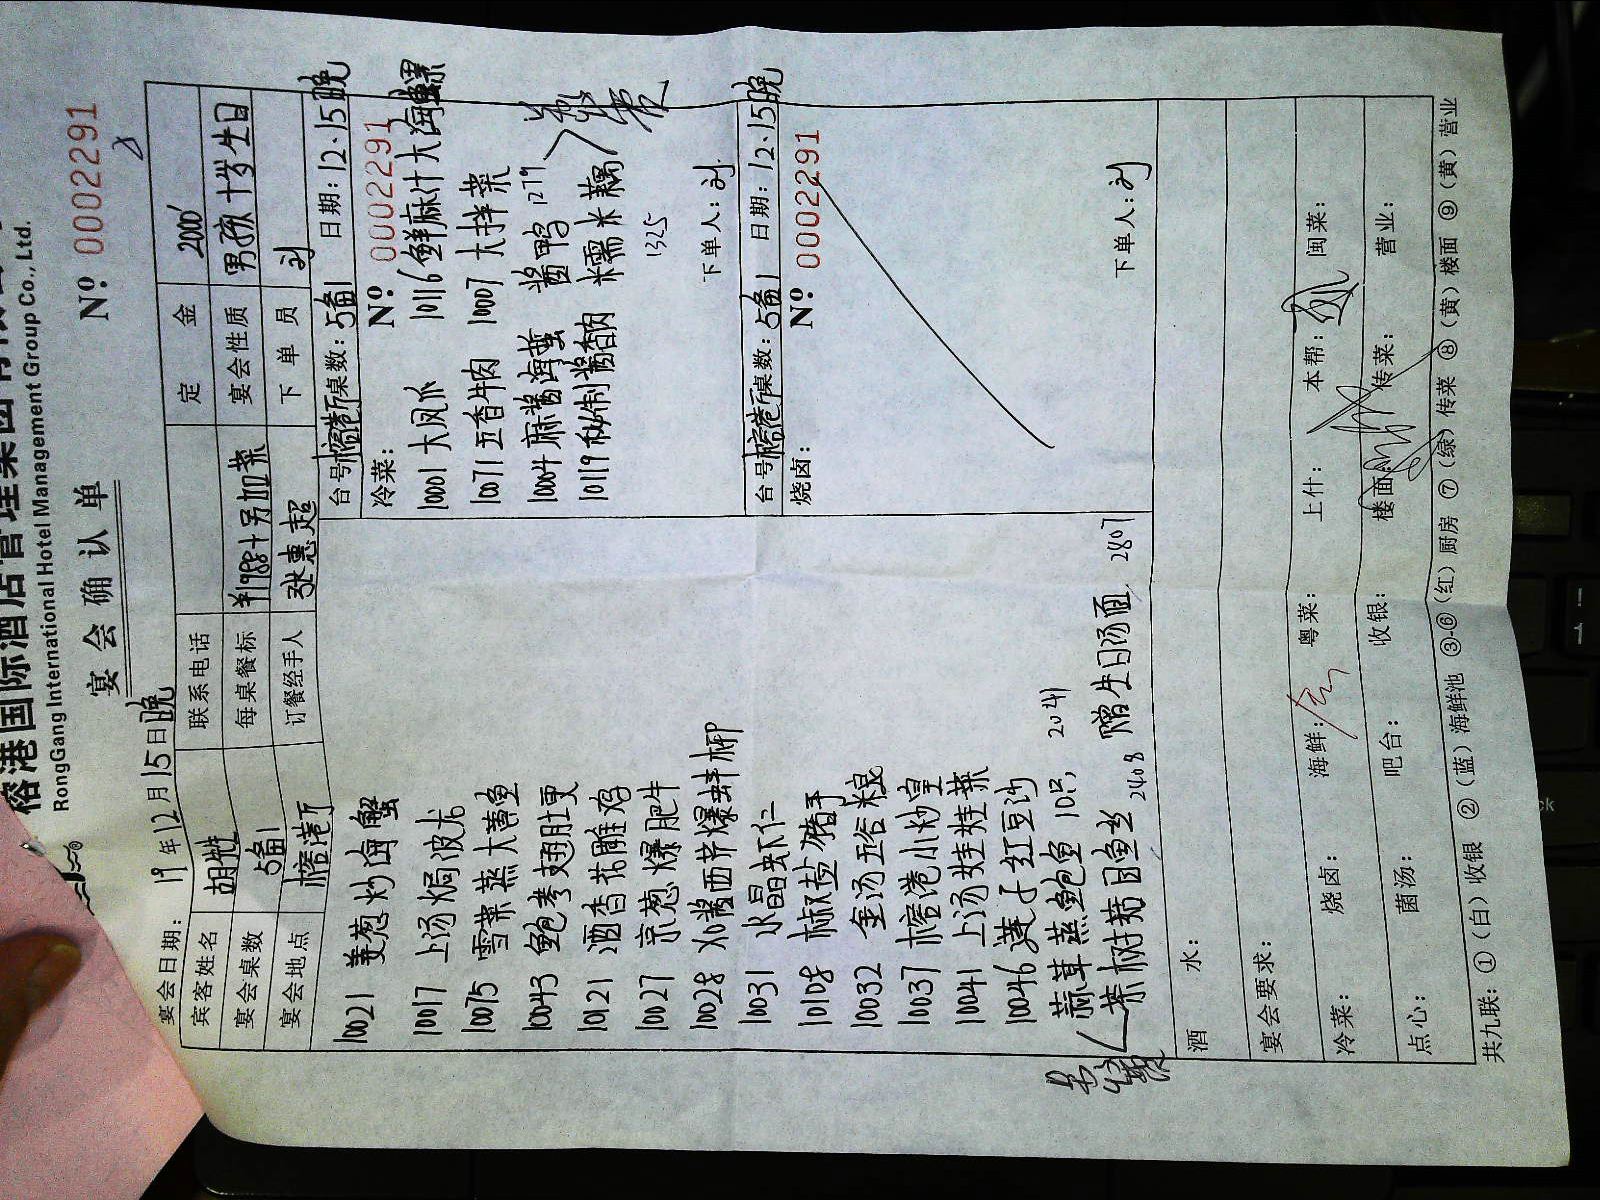 榕港国际酒店管理集团有限公司
RongGang International Hotel Management Group Co., Ltd.
宴会确认单
Nº: 0002291
宴会日期: 19年12月15日晚
宾客姓名 胡胜 联系电话 定金 2000
宴会桌数 5备1 每桌餐标 ¥1988+另加菜 宴会性质 男孩十岁生日
宴会地点 榕港厅 订餐经手人 张惠超 下单员 刘
10021 姜葱炒海蟹
10017 上汤焗波龙
10075 雪菜蒸大黄鱼
10043 鲍参翅肚羹
10121 酒香花雕鸡
10027 京葱爆肥牛
10028 XO酱西芹爆蚌柳
10031 水晶虾仁
10108 椒盐猪手
10032 金汤五谷粮
10037 榕港小炒皇
10041 上汤娃娃菜
10046 莲子红豆沙 2041
蒜茸蒸鲍鱼10只
茶树菇目鱼丝 2408 赠生日汤面 2807
另加菜
台号 榕港厅 桌数: 5备1 日期: 12.15晚
冷菜: Nº: 0002291
10001 大凤爪 10116 鲜麻汁大海螺
10071 五香牛肉 10007 大拌菜
10004 麻酱海蜇 酱鸭 1279
10119 秘制酱香肉 糯米藕
1325
下单人: 刘
台号 榕港厅 桌数: 5备1 日期: 12.15晚
烧卤: Nº: 0002291
下单人: 刘
酒水:
宴会要求:
冷菜: 烧卤: 海鲜: 粤菜: 上什: 本帮: 闽菜:
点心: 菌汤: 吧台: 收银: 楼面: 传菜: 营业:
共九联: ①(白)收银 ②(蓝)海鲜池 ③-⑥(红)厨房 ⑦(绿)传菜 ⑧(黄)楼面 ⑨(黄)营业